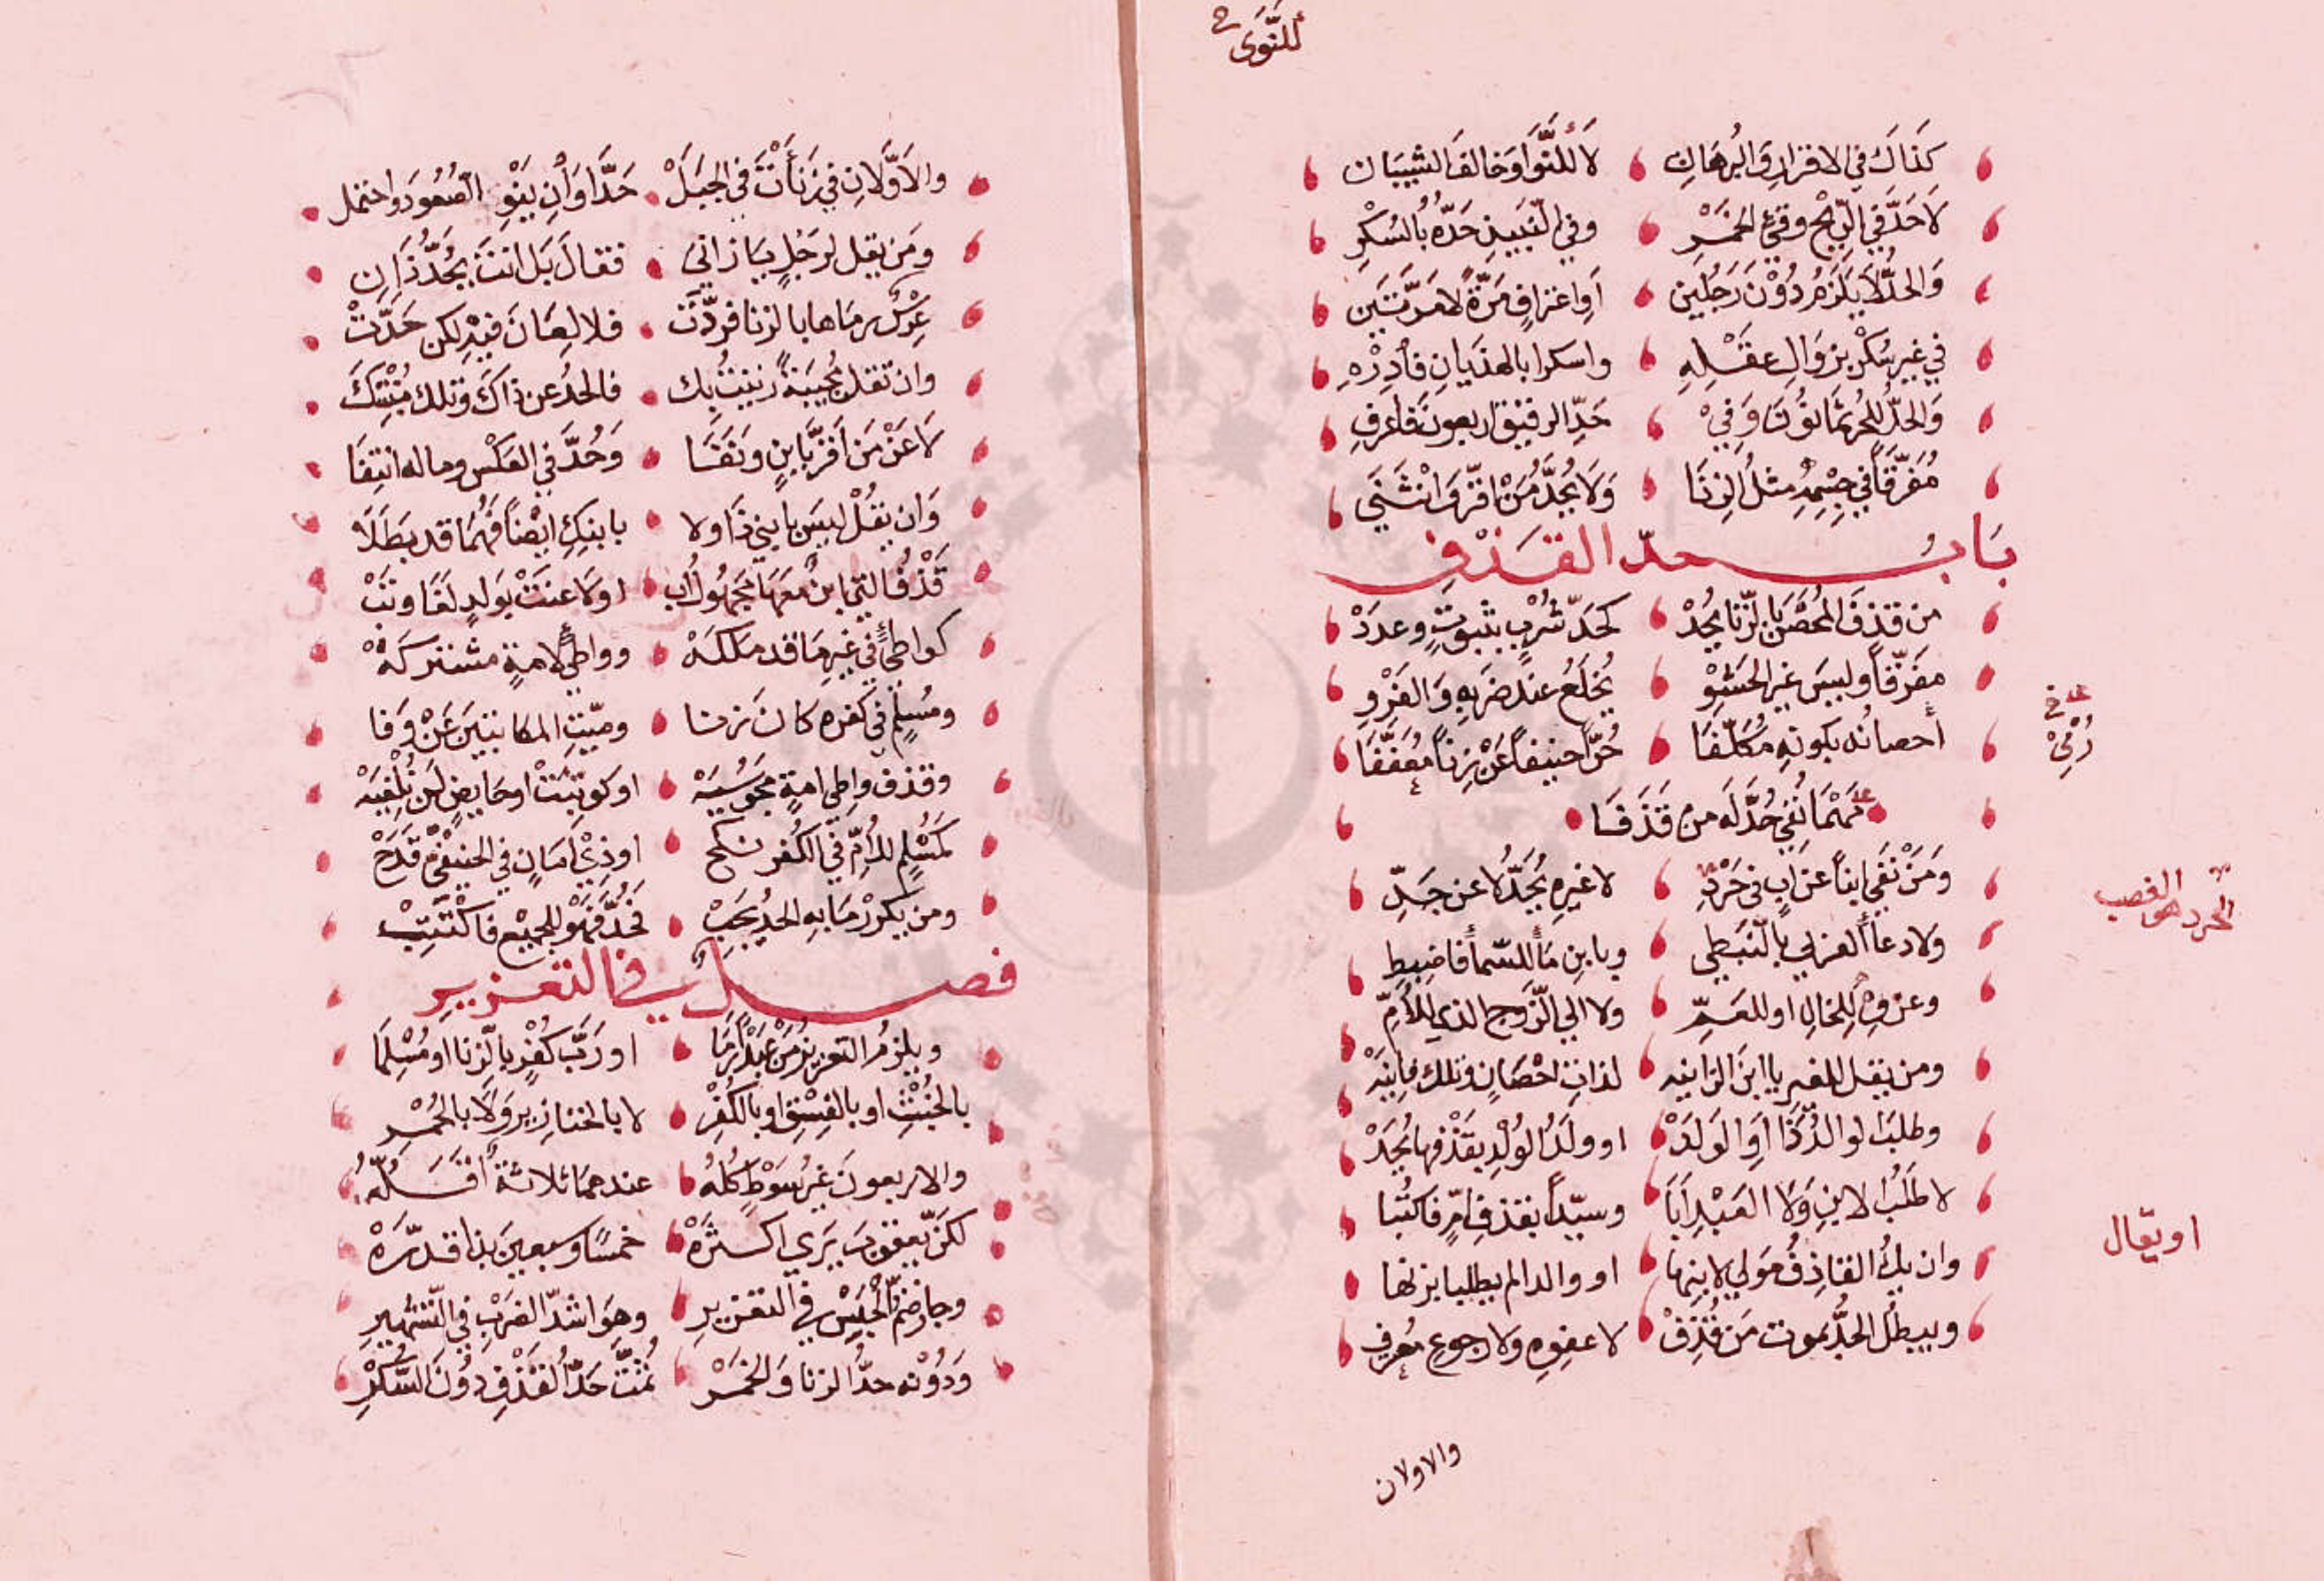 أللنَّوَى
كَذَاكَ في الاقرارِ وَالبُرهَانِ لا لِلنَّوَا وَخالفَ الشيبَان
لاَ حَدَّ في الرِّيْحِ وقَيْءِ الخَمْرِ وفي النَّبيذِ حَدُّهُ بُالسُكْرِ
وَالحدُّ لاَ يَلزَمُ دُوْنَ رَجُلَين اَوِ اعترافٍ مَرّةً لا مَرَّتيَن
في غيرِ سُكْرٍ بزوَالِ عقَلِهِ واسكرا بالهذيَانِ فأدرْهِ
وَالحدُّ للحُرِّ ثمَانُوْنَ وَفِيْ حَدِّ الرقيقِ اربعونَ فَاعرفِ
مُفَرَّقَاً في جِسْمِهِ مثلُ الزنَا وَلاَ يُحَدُّ مُنْ اقرَّ وَانْثَنَي
بَابُ حدّ القَذْفِ
من قذفَ المُحْصَنَ بالزّنا يُحَدْ كحَدِّ شُرْبٍ بثبوتٍ وعدَدْ
مفرّقاً وليسَ غير الحَشْوِ يُخلَعُ عند ضَربهِ وَالفَرْوِ
أحصانُه بكونهِ مُكلّفَا حُرّاً حنيفاً عَنْ زِناً مُعَفَّفَا
مَهْمَا نُفِي حُدَّ لَه من قَذَفَا
وَمَنْ نَفَي ابناً عن ابٍ في حَرْدِ لا غيرِهِ يُحَدُّ لا عن جَدِّ
ولا دعا ألعربي بالنَّبَطي ويا بنِ مَأ للسّمأ فاضبِطِ
وعزوِهِ لِلخالِ او للعَمِّ ولا الي الزَّوجِ الذي للأمِّ
ومن يقل للغيرِ يا ابنَ الزانيه لذاتِ احْصَانٍ وتلك فانيَهْ
وطلبَ لوالدُ ذَا اَوِ الوَلَدْ او ولَدُ الوُلْدِ بقَذْفها يُحَدْ
لا طَلَبُ الابنِ وَلاَ العَبْدِ اَبَا وسيّداً بقذفِ امٍّ فاكتُبا
وان يكُ القاذِفُ مَولي لابنها او والدا لم يطلبا بزنها
ويبطلُ الحدُّ بموت مَن قُذِفْ لا عفوِهِ ولا رجوعِ مُعرفِ
غد في
رُمِيْ
الحرد هو الغصب
او يقال
والاولان
والاَوَّلانِ في زنَأْتَ في الجبَلْ حَدَّا وَأنِ ينْوِ الصُعُودَ واحتمل
ومَن يقل لرَجُلٍ يَا زاني فقالَ بَل انتَ يُحَدُّ ذَانِ
عِرْسٌ رمَاها بالزنا فردّت فلا لِعَانَ فيهِ لكن حَدَّتْ
وان تقل مُجيبَةً زنيتُ بِك فالحدُ عن ذاكَ وتلك مُنْتِتكَ
لاَ عَنْ مَن اَقرّ بابنٍ ونَفَا وَحُدَّ في العَكْس وما له انتِفَا
وَان يقُلْ ليسَ بابني ذَا ولا بابنكِ ايْضاً فَهُمَا قد بطَلاَ
قَذْفُ التي ابنٌ مَعَهَا مجَهُولُ اَب اولاَعَنَتْ بوَلدٍ لقَا وتَبْ
كواطئٍ في غيرِ مَا قد ملكَهْ وواطئٍ لامةٍ مشتركَهْ
ومُسلمٍ في كفرهِ كانَ زنا وميّتِ المكاتبينَ عَنْ وَفا
وقذف واطي امةٍ مجَوُسيَهْ او كوتبَتْ او حَايضٍ لَن تُلْفِيَهْ
كَمسُلِمٍ للأمِّ في الكُفر نكح او ذِيْ اَمَانٍ في الحنيفيِّ قَدَحْ
ومن يكرّرْ مَا بهِ الحدُ يَجبْ فَحُدَّ فَهْوَ للجميْعِ فاكْتَتِبْ
فصلٌ في التعزيرِ
ويلزمُ التعزيرُ مَنْ عَبْدَاً رَمَا او ربَّ كُفرٍ بالزنا او مُسْلِمَا
بالخُبْثِ او بالفِسْقِ او بالكُفْرِ لا بالخنازيرِ وَلاَ بالحُمْرِ
والاربعونَ غَيرُ سَوْطٍ كُلهُ عندهمَا ثلاثةٌ اُقَلُّهُ
لكنّ يعقوبَ يَرَي اكثرَهْ خمسًا وسبعينَ بذا قدرّهْ
وجازَ ضَمُّ الحَبْسِ في التعزيرِ وهوَ اشدُّ الضرَبِ في التَّشهيرِ
وَدُوْنه حدُّ الزنا وَالخَمْرِ ثمَّتَ حَدُّ القذْفِ دُوْنَ السُّكْرِ